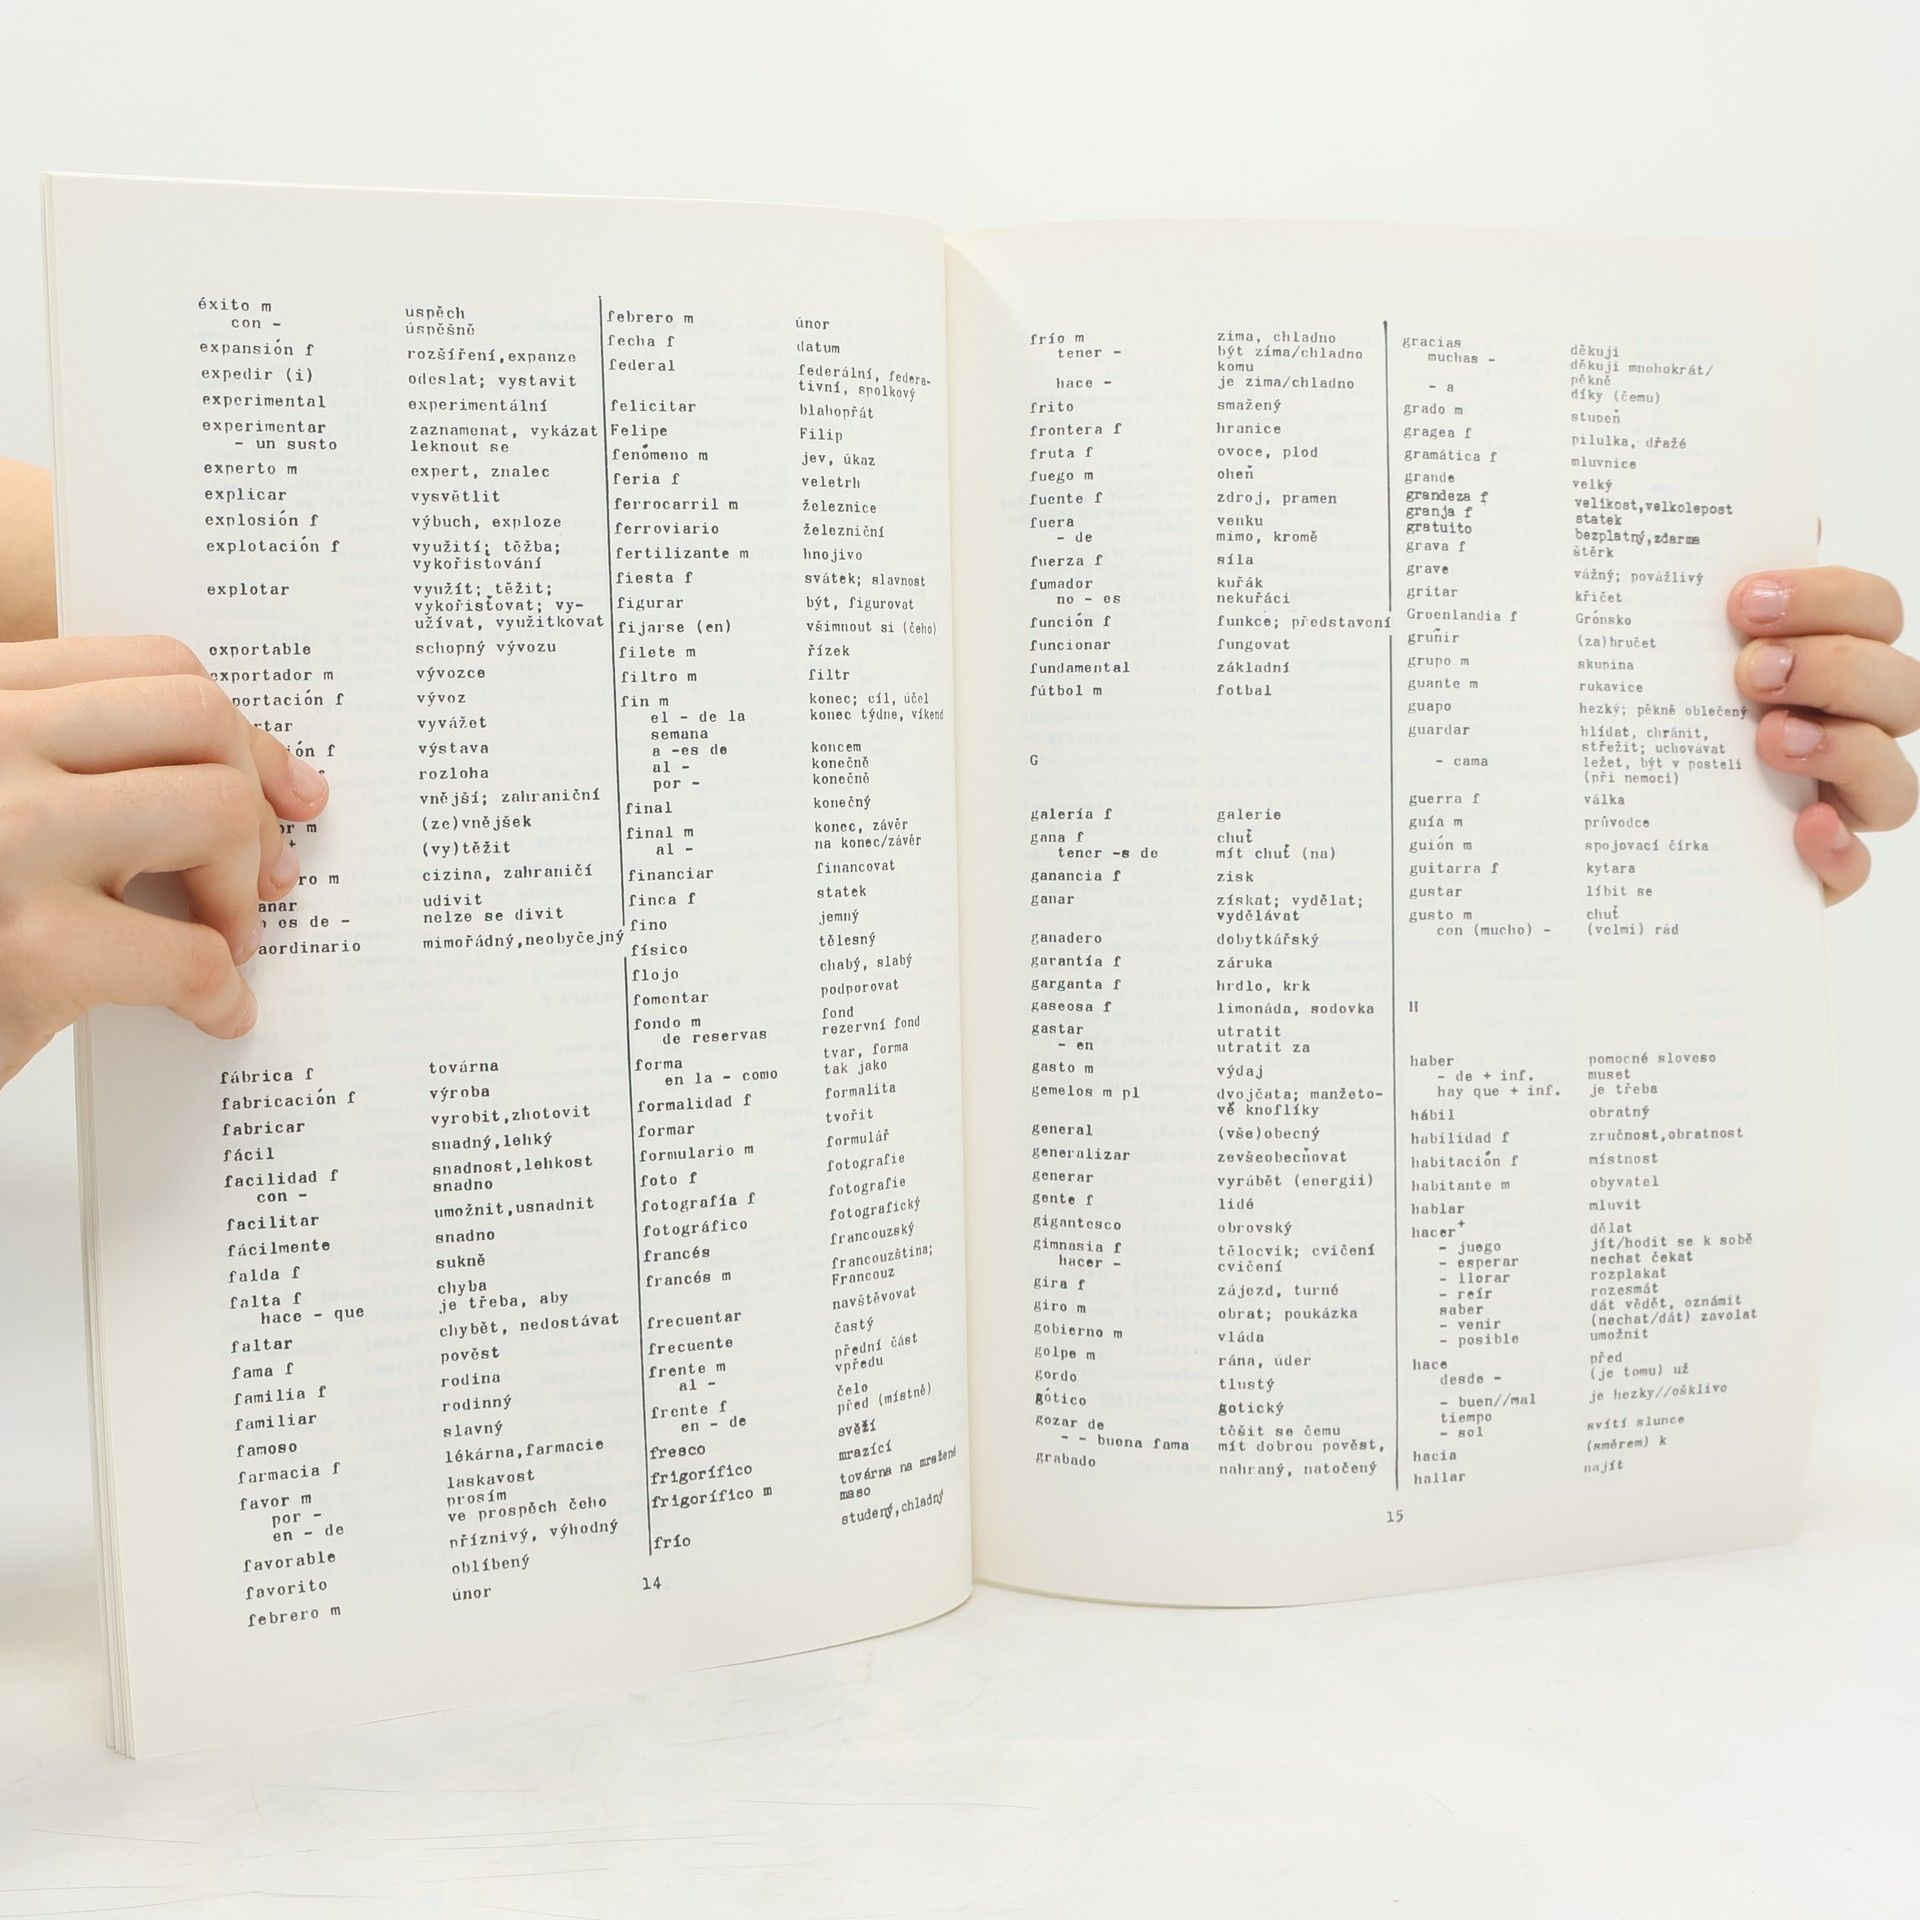 éxito m úspěch
con - úspěšně
expansión f rozšíření,expanze
expedir (i) odeslat; vystavit
experimental experimentální
experimentar zaznamenat, vykázat
- un susto leknout se
experto m expert, znalec
explicar vysvětlit
explosión f výbuch, exploze
explotación f využití; těžba;
vykořisťování
explotar využít; těžit;
vykořisťovat; vy-
užívat, využitkovat
exportable schopný vývozu
exportador m vývozce
portación f vývoz
rtar vyvážet
ión f výstava
rozloha
vnější; zahraniční
or m (ze)vnějšek
+ (vy)těžit
ro m cizina, zahraničí
anar udivit
es de - nelze se divit
aordinario mimořádný,neobyčejný
fábrica f továrna
fabricación f výroba
fabricar vyrobit,zhotovit
fácil snadný,lehký
facilidad f snadnost,lehkost
con - snadno
facilitar umožnit,usnadnit
fácilmente snadno
falda f sukně
falta f chyba
hace - que je třeba, aby
faltar chybět, nedostávat
fama f pověst
familia f rodina
familiar rodinný
famoso slavný
farmacia f lékárna,farmacie
favor m laskavost
por - prosím
en - de ve prospěch čeho
favorable příznivý, výhodný
favorito oblíbený
febrero m únor
febrero m únor
fecha f datum
federal federální, federa-
tivní, spolkový
felicitar blahopřát
Felipe Filip
fenómeno m jev, úkaz
feria f veletrh
ferrocarril m železnice
ferroviario železniční
fertilizante m hnojivo
fiesta f svátek; slavnost
figurar být, figurovat
fijarse (en) všimnout si (čeho)
filete m řízek
filtro m filtr
fin m konec; cíl, účel
el - de la konec týdne, víkend
semana
a -es de koncem
al - konečně
por - konečně
final konečný
final m konec, závěr
al - na konec/závěr
financiar financovat
finca f statek
fino jemný
físico tělesný
flojo chabý, slabý
fomentar podporovat
fondo m fond
de reservas rezervní fond
forma tvar, forma
en la - como tak jako
formalidad f formalita
formar tvořit
formulario m formulář
foto f fotografie
fotografía f fotografie
fotográfico fotografický
francés francouzský
francés m francouzština;
Francouz
frecuentar navštěvovat
frecuente častý
frente m přední část
al - vpředu
frente f čelo
en - de před (místně)
fresco svěží
frigorífico mrazící
frigorífico m továrna na mražené
maso
frío studený,chladný
14
frío m zima, chladno
tener - být zima/chladno
komu
hace - je zima/chladno
frito smažený
frontera f hranice
fruta f ovoce, plod
fuego m oheň
fuente f zdroj, pramen
fuera venku
- de mimo, kromě
fuerza f síla
fumador kuřák
no - es nekuřáci
función f funkce; představení
funcionar fungovat
fundamental základní
fútbol m fotbal
G
galería f galerie
gana f chuť
tener -s de mít chuť (na)
ganancia f zisk
ganar získat; vydělat;
vydělávat
ganadero dobytkářský
garantía f záruka
garganta f hrdlo, krk
gaseosa f limonáda, sodovka
gastar utratit
- en utratit za
gasto m výdaj
gemelos m pl dvojčata; manžeto-
vé knoflíky
general (vše)obecný
generalizar zevšeobecňovat
generar vyrábět (energii)
gente f lidé
gigantesco obrovský
gimnasia f tělocvik; cvičení
hacer - cvičení
gira f zájezd, turné
giro m obrat; poukázka
gobierno m vláda
golpe m rána, úder
gordo tlustý
gótico gotický
gozar de těšit se čemu
- - buena fama mít dobrou pověst,
grabado nahraný, natočený
gracias děkuji
muchas - děkuji mnohokrát/
pěkně
- a díky (čemu)
grado m stupeň
gragea f pilulka, dražé
gramática f mluvnice
grande velký
grandeza f velikost,velkolepost
granja f statek
gratuito bezplatný,zdarma
grava f štěrk
grave vážný; povážlivý
gritar křičet
Groenlandia f Grónsko
gruñir (za)hručet
grupo m skupina
guante m rukavice
guapo hezký; pěkně oblečený
guardar hlídat, chránit,
střežit; uchovávat
- cama ležet, být v posteli
(při nemoci)
guerra f válka
guía m průvodce
guión m spojovací čírka
guitarra f kytara
gustar líbit se
gusto m chuť
con (mucho) - (velmi) rád
H
haber pomocné sloveso
- de + inf. muset
hay que + inf. je třeba
hábil obratný
habilidad f zručnost,obratnost
habitación f místnost
habitante m obyvatel
hablar mluvit
hacer+ dělat
- juego jít/hodit se k sobě
- esperar nechat čekat
- llorar rozplakat
- reír rozesmát
saber dát vědět, oznámit
- venir (nechat/dát) zavolat
- posible umožnit
hace před
desde - (je tomu) už
- buen//mal je hezky//ošklivo
tiempo
- sol svítí slunce
hacia (směrem) k
hallar najít
15